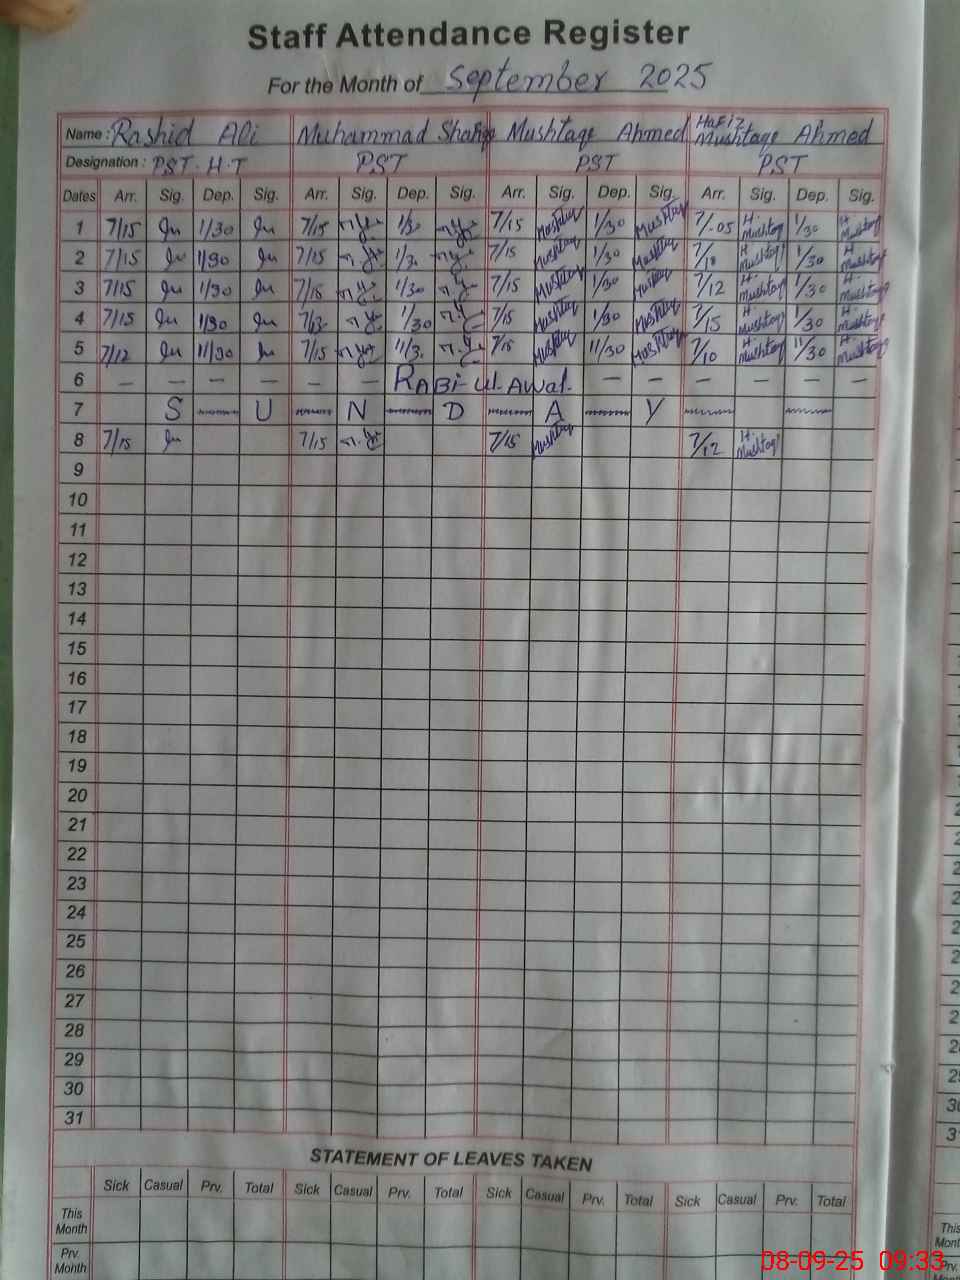 Staff Attendance Register
For the Month of September 2025
Name : Rashid Ali Muhammad Mushtaqe Ahmed Hafiz Mushtaqe Ahmed
Designation : PST. H.T PST PST PST
Dates Arr. Sig. Dep. Sig. Arr. Sig. Dep. Sig. Arr. Sig. Dep. Sig. Arr. Sig. Dep. Sig.
1 7/15 1/30 7/15 1/30 7/15 Mushtaq 1/30 Mushtaq 7/-05 H. Mushtaq 1/30 H. Mushtaq
2 7/15 1/30 7/15 1/3. 7/15 Mushtaq 1/30 Mushtaq 7/10 H Mushtaq 1/30 H. Mushtaq
3 7/15 1/30 7/15 1/30 7/15 Mushtaq 1/30 Mushtaq 7/12 H. Mushtaq 1/30 H. Mushtaq
4 7/15 1/30 1/30 7/15 Mushtaq 1/30 Mushtaq 7/15 H. Mushtaq 1/30 H. Mushtaq
5 7/12 11/30 7/15 11/3. 7/15 Mushtaq 11/30 Mushtaq 7/10 H. Mushtaq 11/30 H. Mushtaq
6 — — — — — — RABI-ul-AWAL. — — — — — —
7 S U N D A Y
8 7/15 7/15 7/15 Mushtaq 7/12 H. Mushtaq
9
10
11
12
13
14
15
16
17
18
19
20
21
22
23
24
25
26
27
28
29
30
31
STATEMENT OF LEAVES TAKEN
Sick Casual Prv. Total Sick Casual Prv. Total Sick Casual Prv. Total Sick Casual Prv. Total
This Month
Prv. Month
08-09-25 09:33